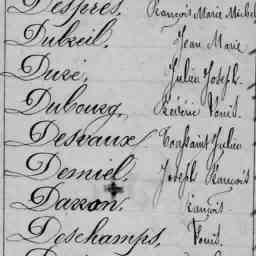 Desprès, François Marie Michel
Dubreil, Jean Marie
Duré, Julien Joseph
Dubourg, Frédéric Louis
Desvaux Toussaint Julien
Demiel, Joseph François
Davron, François
Deschamps, Louis